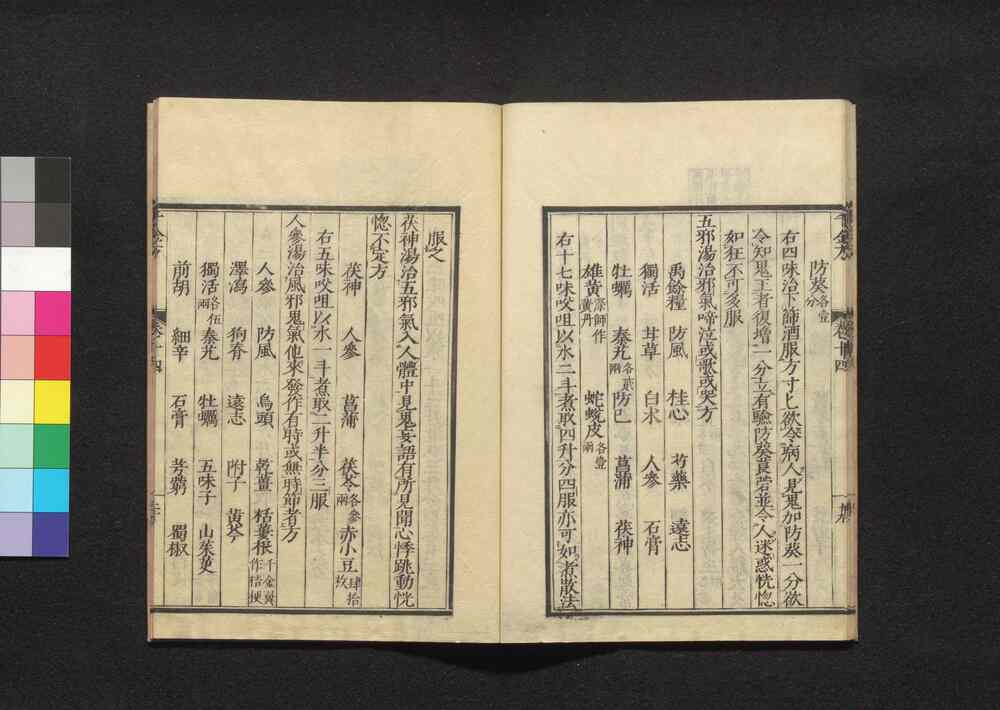 防葵各壹分
右四味治下篩酒服方寸匕欲令病人見鬼加防葵一分欲
令知鬼主者復增一分立有驗防葵莨菪並令人迷惑恍惚
如狂不可多服
五邪湯治邪氣啼泣或歌或哭方
禹餘糧 防風 桂心 芍藥 遠志
獨活 甘草 白朮 人參 石膏
牡蠣 秦艽各貳兩 防己 菖蒲 茯神
雄黃深師作黃丹 蛇蛻皮各壹兩
右十七味㕮咀以水二斗煮取四升分四服亦可如煮散法
服之
茯神湯治五邪氣入人體中見鬼妄語有所見聞心悸跳動恍
惚不定方
茯神 人參 菖蒲 茯苓各參兩 赤小豆肆拾枚
右五味㕮咀以水一斗煮取二升半分三服
人參湯治風邪鬼氣往來發作有時或無時節者方
人參 防風 烏頭 乾薑 栝蔞根千金翼作桔梗
澤瀉 狗脊 遠志 附子 黃芩
獨活各伍兩 秦艽 牡蠣 五味子 山茱萸
前胡 細辛 石膏 芎藭 蜀椒